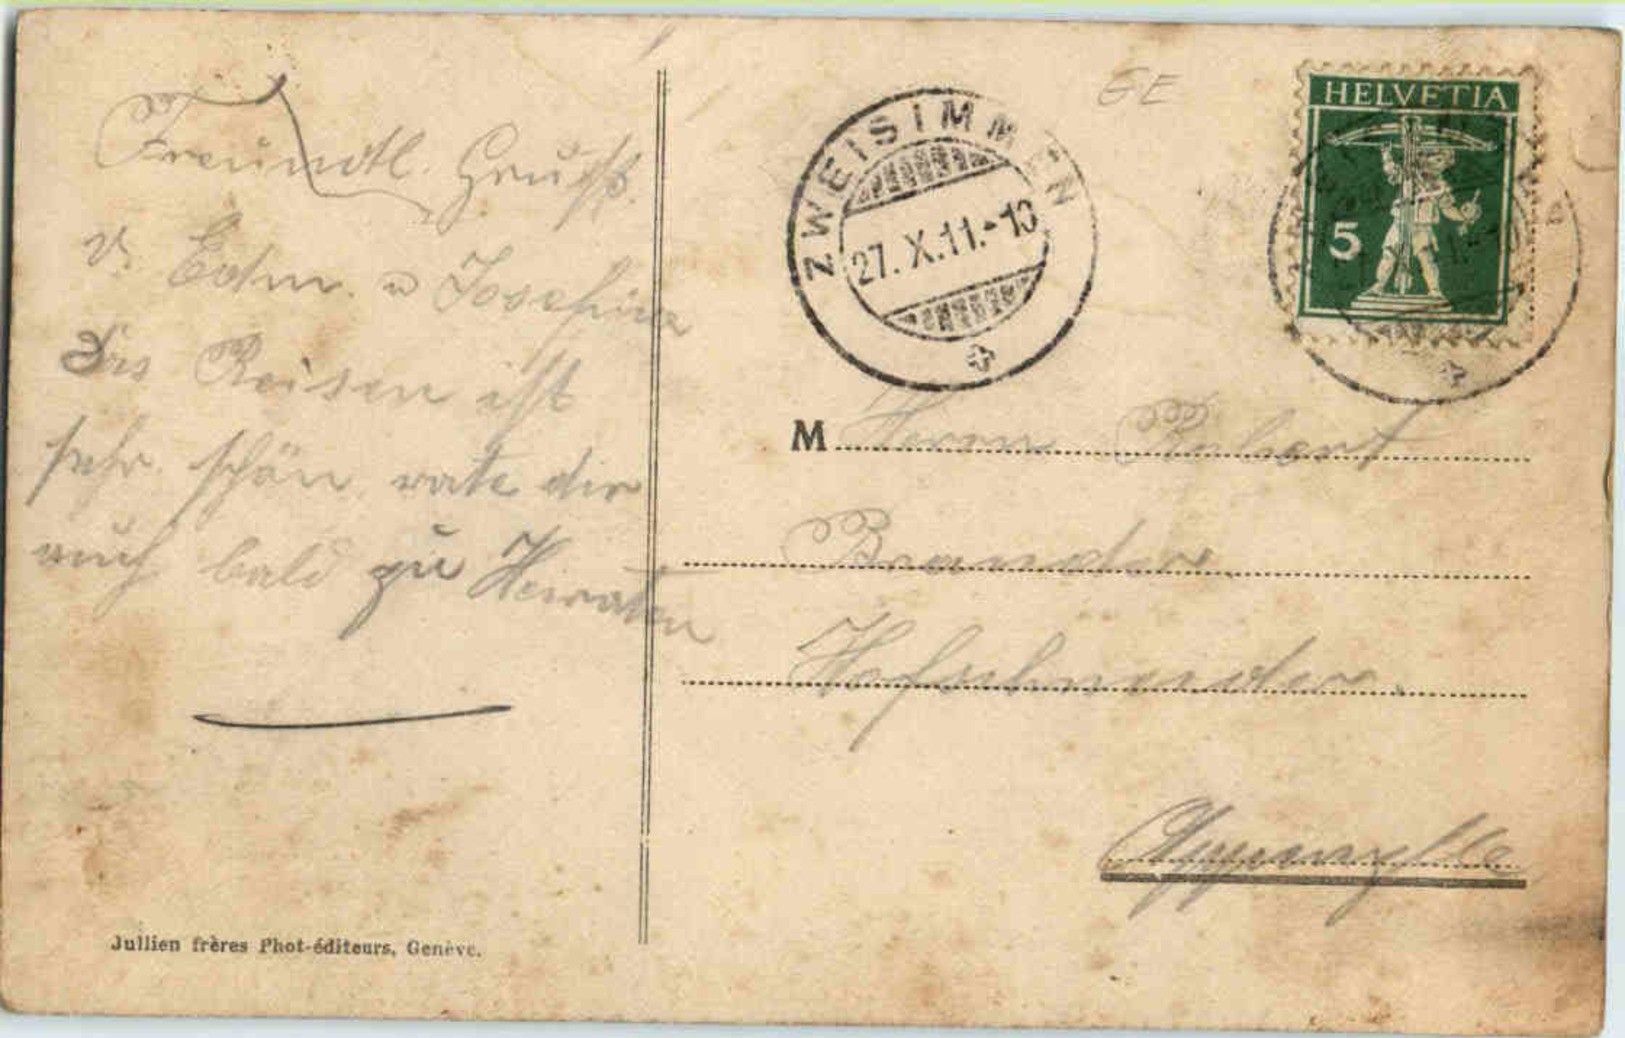 Freundl. Gruss.
v. Edm. u Josefine
Das Reisen ist
sehr schön, rate dir
auch bald zu Heiraten
Jullien frères Phot-éditeurs, Genève.
GE
ZWEISIMMEN
27. X. 11.-10
HELVETIA
5
M Herrn Robert
Brander.
Hofschneider.
Appenzell